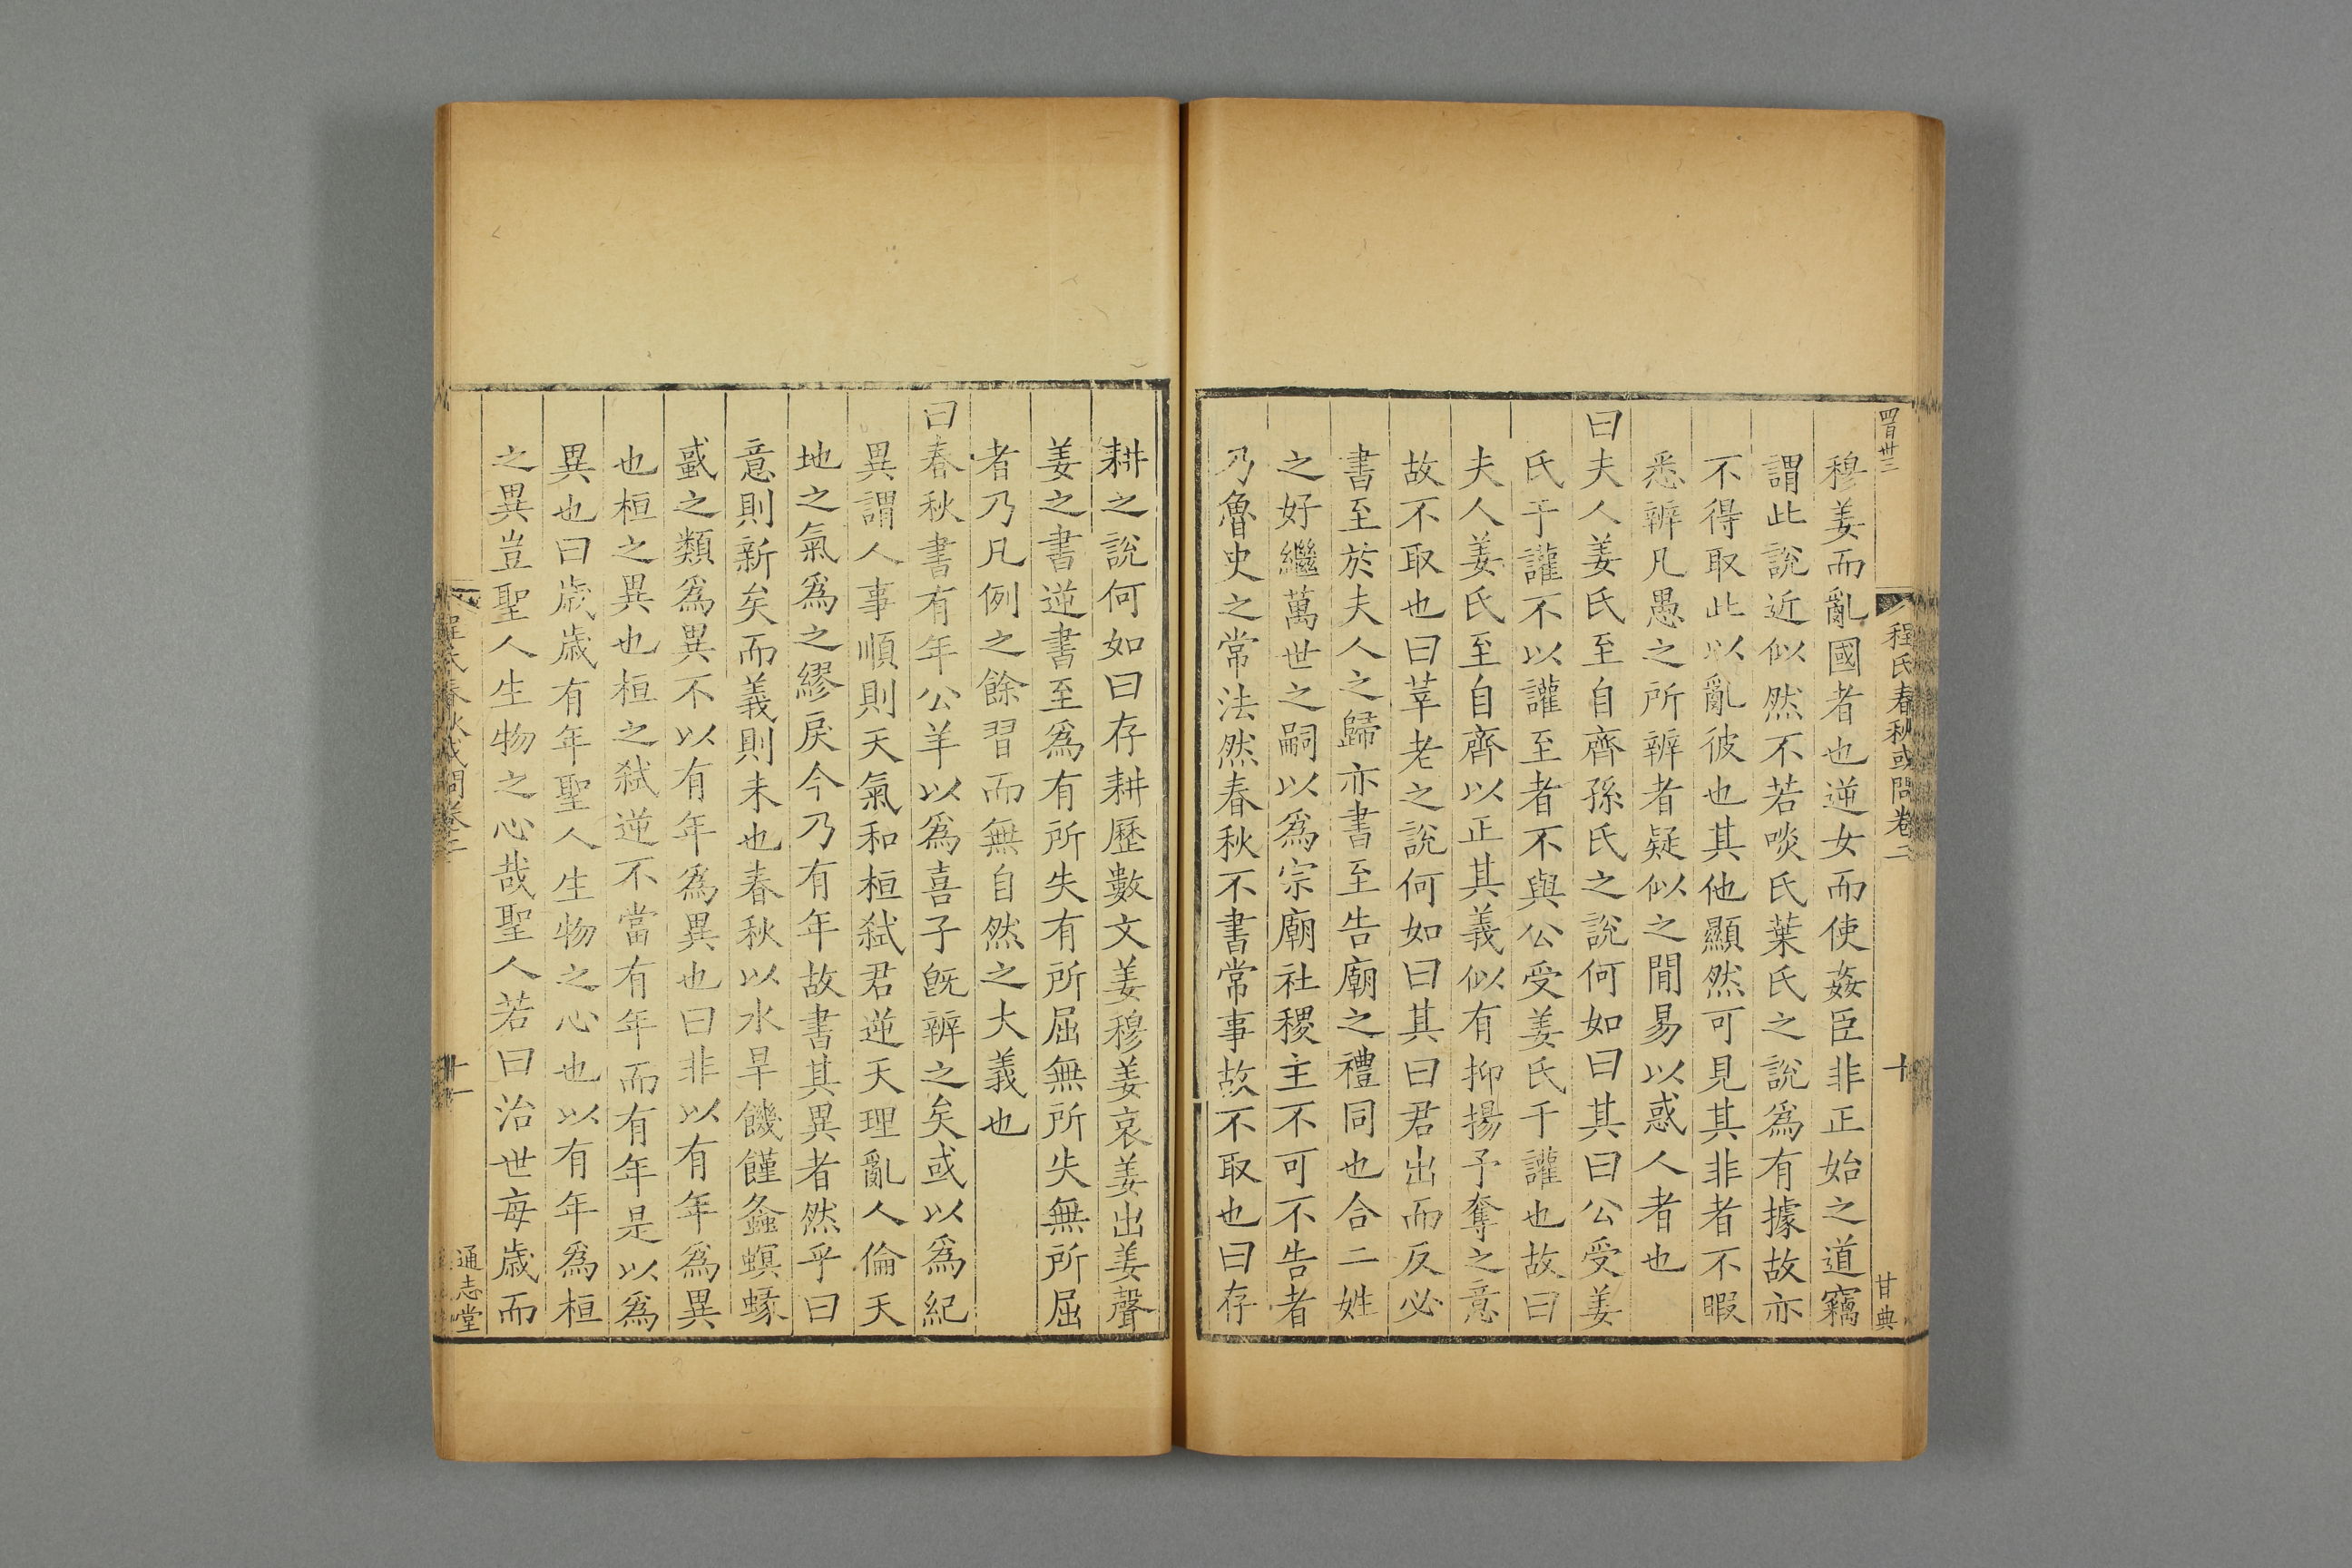 程氏春秋或問卷二
十
甘典
穆姜而亂國者也逆女而使姦臣非正始之道竊
謂此說近似然不若啖氏葉氏之說爲有據故亦
不得取此以亂彼也其他顯然可見其非者不暇
悉辨凡愚之所辨者疑似之閒易以惑人者也
曰夫人姜氏至自齊孫氏之說何如曰其曰公受姜
氏于讙不以讙至者不與公受姜氏于讙也故曰
夫人姜氏至自齊以正其義似有抑揚予奪之意
故不取也曰莘老之說何如曰其曰君出而反必
書至於夫人之歸亦書至告廟之禮同也合二姓
之好繼萬世之嗣以爲宗廟社稷主不可不告者
乃魯史之常法然春秋不書常事故不取也曰存
耕之說何如曰存耕歷數文姜穆姜哀姜出姜聲
姜之書逆書至爲有所失有所屈無所失無所屈
者乃凡例之餘習而無自然之大義也
曰春秋書有年公羊以爲喜子旣辨之矣或以爲紀
異謂人事順則天氣和桓弑君逆天理亂人倫天
地之氣爲之繆戾今乃有年故書其異者然乎曰
意則新矣而義則未也春秋以水旱饑饉螽螟蝝
蜮之類爲異不以有年爲異也曰非以有年爲異
也桓之異也桓之弑逆不當有年而有年是以爲
異也曰歲歲有年聖人生物之心也以有年爲桓
之異豈聖人生物之心哉聖人若曰治世每歲而
程氏春秋或問卷二
十一
通志堂